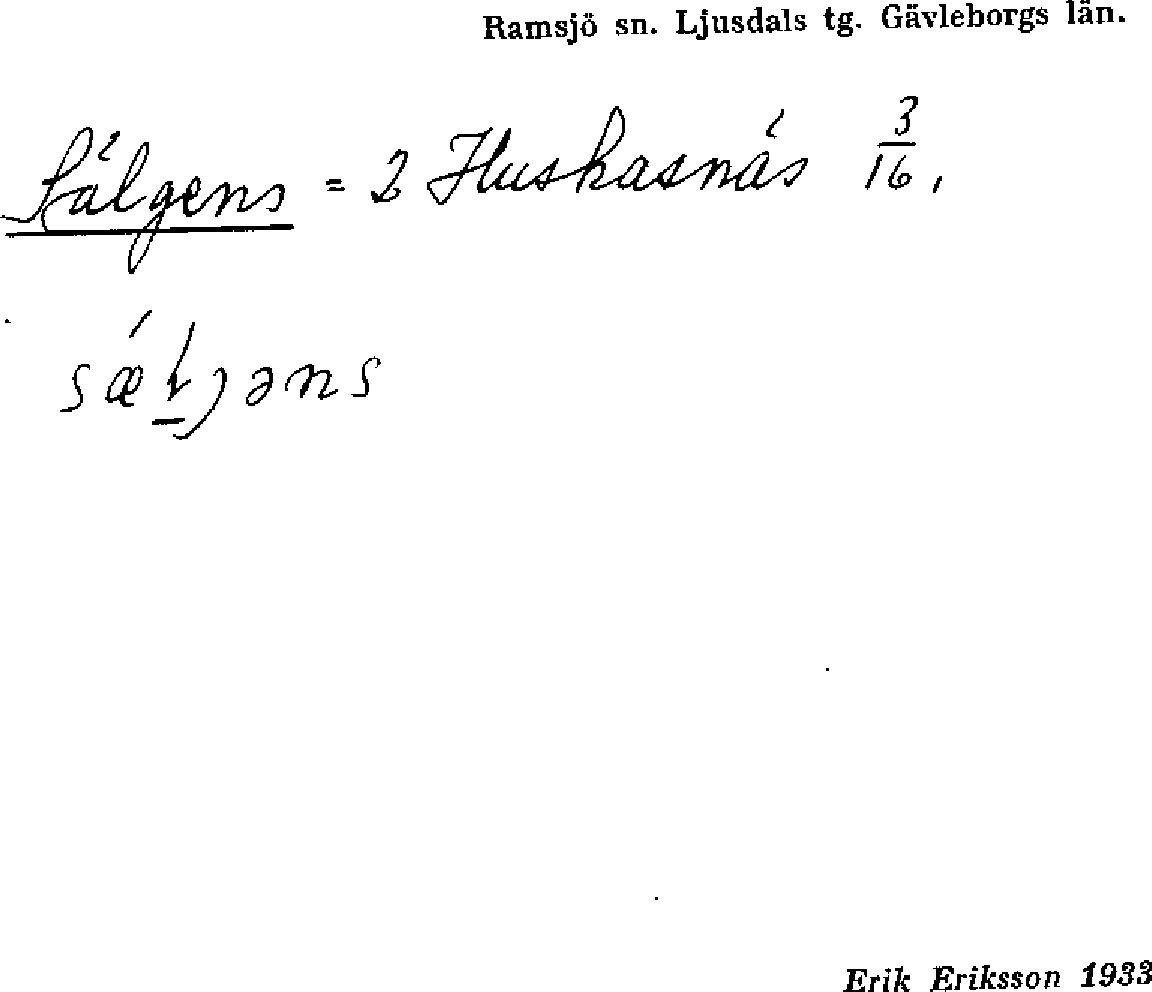 Ramsjö sn. Ljusdals tg. Gävleborgs län.
Sälgens = 2 Huskasnäs 3/16,
Erik Eriksson 1933